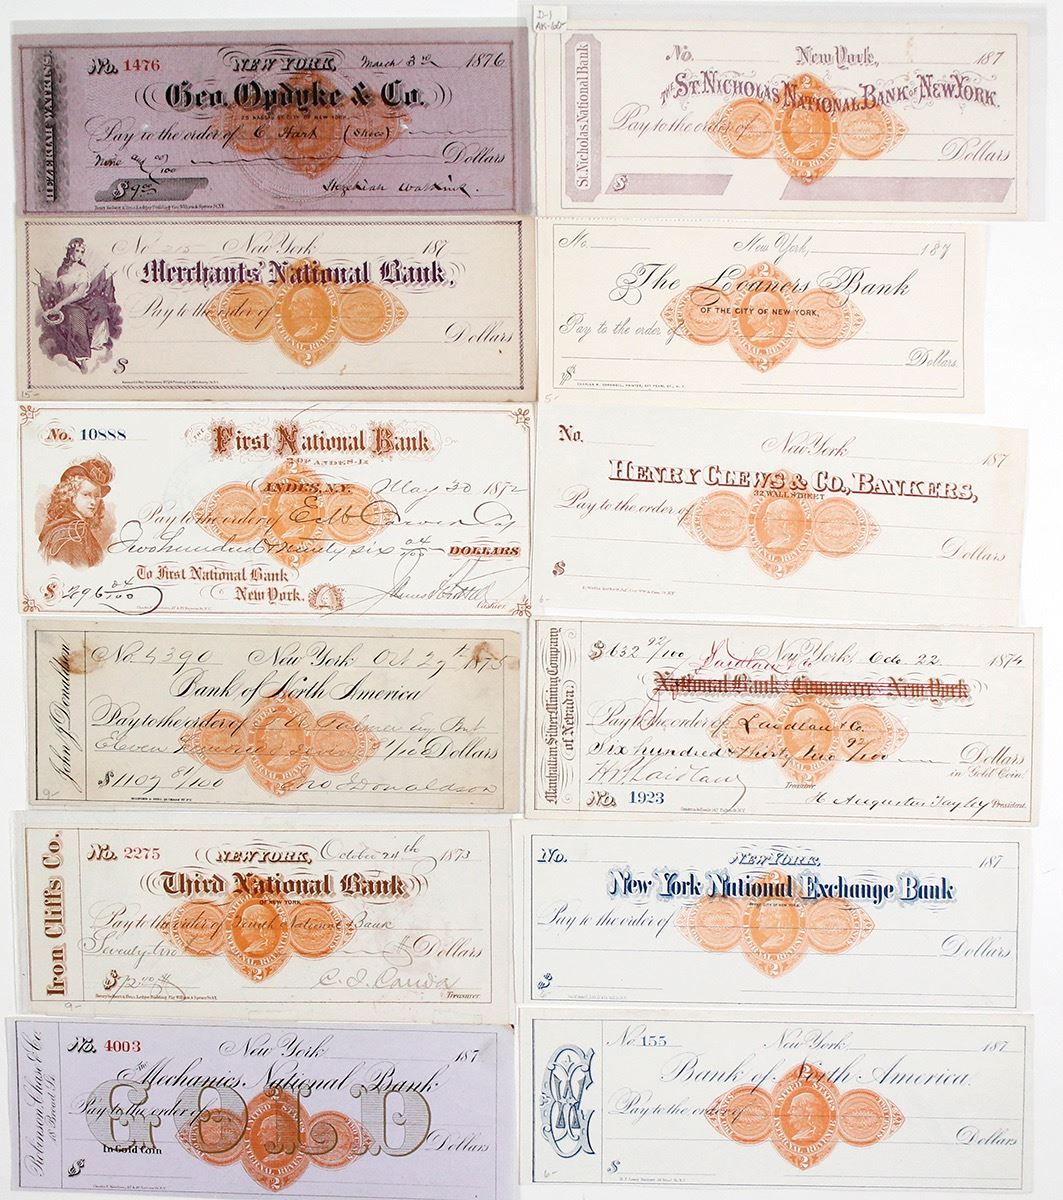 HEZEKIAH WATKINS.
No. 1476 NEW YORK, March 3rd 1876
Geo. Opdyke & Co.
25 NASSAU ST. CITY OF NEW YORK.
Pay to the order of C Hart (Shoes)
Nine and 00/100 Dollars
$9.00 Hezekiah Watkins.
D-1
St. Nicholas National Bank
No. New York, 187
THE ST. NICHOLAS NATIONAL BANK OF NEW YORK.
Pay to the order of
Dollars
$
No. 215 New York 187
Merchants' National Bank,
Pay to the order of
Dollars
$
15-
No. New York, 187
The Loaners Bank
OF THE CITY OF NEW YORK,
Pay to the order of
Dollars.
$
5-
No. 10888
THE First National Bank
OF ANDES
ANDES, N.Y. May 30 1872
Pay to the order of
Two hundred & Ninety six 04/100 DOLLARS
To First National Bank
$296 04/100 New York. Cashier
No. New York 187
HENRY CLEWS & CO., BANKERS,
32 WALL STREET
Pay to the order of
Dollars
$
6-
John J Donaldson
No. 5390 New York Oct 29th 1875
Bank of North America
Pay to the order of
Eleven Hundred 81/100 Dollars
$1107 81/100 Jno J Donaldson
9-
Manhattan Silver Mining Company of Nevada.
$632 92/100 New York, Oct. 22 1874
Laidlaw & Co
National Bank of Commerce New York
Pay to the order of Laidlaw & Co.
Six hundred & thirty two 92/100 Dollars
in Gold Coin.
H P Laidlaw Treasurer
No. 1923 H Augustus Tayley President.
Iron Cliffs Co.
No. 2275 NEW YORK, October 24th 1873
Third National Bank
OF NEW YORK
Pay to the order of National Bank
Seventy two Dollars
$72.00
Treasurer
9-
No. NEW YORK, 187
New York National Exchange Bank
Pay to the order of
Dollars
$
6-
Robinson, Chase & Co.
18 Broad St.
No. 4003 New York 187
The Mechanics National Bank
Pay to the order of
GOLD
In Gold Coin Dollars
$
No. 155 New York 187
Bank of North America
Pay to the order of
Dollars
$
6-
UNITED STATES
INTERNAL REVENUE
2